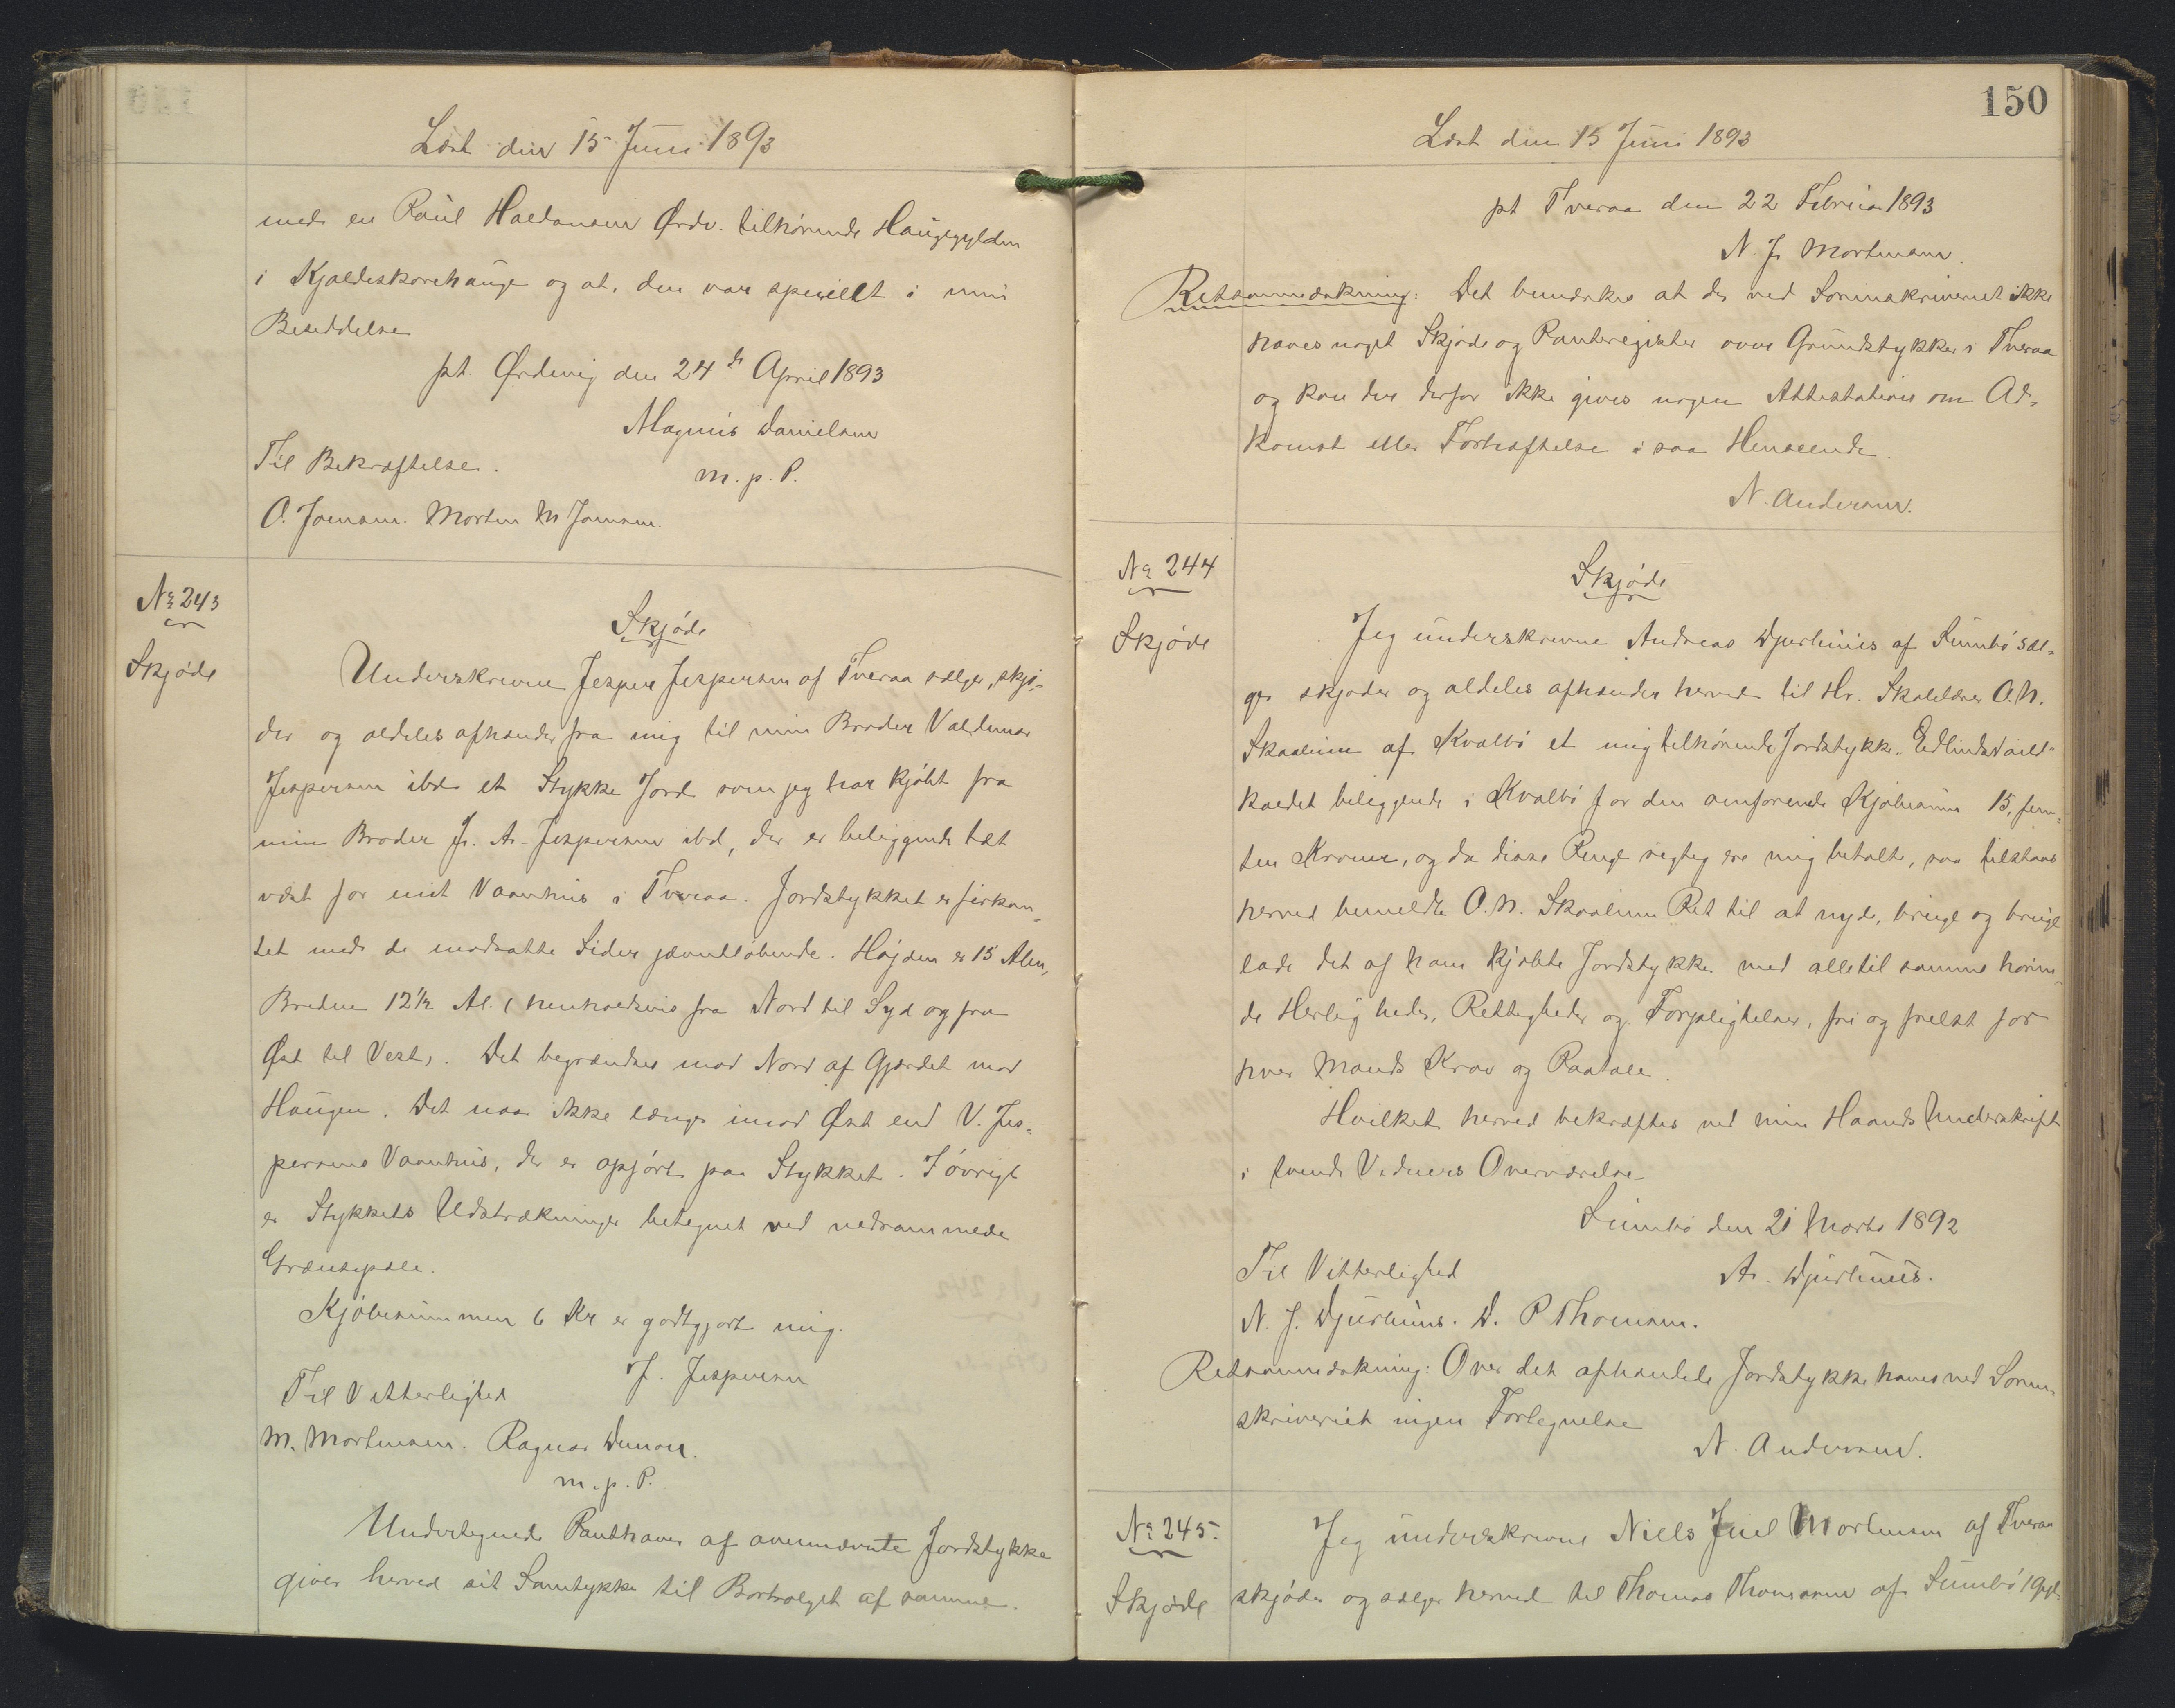 Læst den 15 Juni 1893
med en Poul Haldansen Ørdv. tilhørende Haugegylden
i Kjældeskorehauge og at den var specielt i min
Besiddelse
pt Ørdevig den 24de April 1893
Magnus Danielsen
Til Bekræftelse.
m. p. P.
O. Joensen. Morten M Joensen.
№ 243
Skjøde
Skjøde
Underskrevne Jesper Jespersen af Tveraa sælger, skjø-
der og aldeles afhænder fra mig til min Broder Valdemar
Jespersen ibd. et Stykke Jord som jeg har kjøbt fra
min Broder J. A. Jespersen ibd, der er beliggende tæt
vest for mit Vaanhus i Tveraa. Jordstykket er firkan-
tet med de modsatte Sider jævntløbende. Højden er 15 Alen,
Bredden 12½ Al. (henholdsvis fra Nord til Syd og fra
Øst til Vest). Det begrændses mod Nord af Gjærdet mod
Haugen. Det naar ikke længer imod Øst end V. Jes-
persens Vaanhus, der er opført paa Stykket. I øvrigt
er Stykkets Udstrækninger betegnet ved nedrammede
Grænsepæle.
Kjøbesummen 6 Kr er godtgjort mig.
J. Jespersen
Til Vitterlighed
M. Mortensen. Ragnar Dunon.
m. p. P.
Undertegnede Panthaver af ovennævnte Jordstykke
giver herved sit Samtykke til Bortsalget af samme.
150
Læst den 15 Juni 1893
pt Tveraa den 22 Februar 1893
N. J. Mortensen.
Retsanmærkning: Det bemærkes at der ved Sorenskriveriet ikke
haves noget Skjøde og Panteregister over Grundstykker i Tveraa
og kan der derfor ikke gives nogen Attestation om Ad-
komst eller Forhæftelse i saa Henseende.
N. Andersen.
№ 244
Skjøde
Skjøde
Jeg underskrevne Andreas Djurhuus af Sumbø sæl-
ger skjøder og aldeles afhænder herved til Hr. Skolelærer O. N.
Skaalum af Kvalbø et mig tilhørende Jordstykke
kaldet beliggende i Kvalbø for den omforenede Kjøbesum 15, fem-
ten Kroner, og da disse Penge rigtig ere mig betalte, saa tilstaas
herved bemeldte O. N. Skaalum Ret til at nyde, bruge og bruge
lade det af ham kjøbte Jordstykke med alle til samme høren-
de Herligheder, Rettigheder og Forpligtelser, fri og frelst for
hver Mands Krav og Paatale.
Hvilket herved bekræftes ved min Haands Underskrift
i tvende Vidners Overværelse
Sumbø den 21 Marts 1892
Til Vitterlighed
A. Djurhuus.
N. J. Djurhuus. D. P Thomsen.
Retsanmærkning: Over det afhandlede Jordstykke haves ved Soren-
skriveriet ingen Fortegnelse
N. Andersen.
№ 245.
Skjøde
Jeg underskrevne Niels Juel Mortensen af Tveraa
skjøder og sælger herved til Thomas Thomsen af Sumbø 1 Gyl-